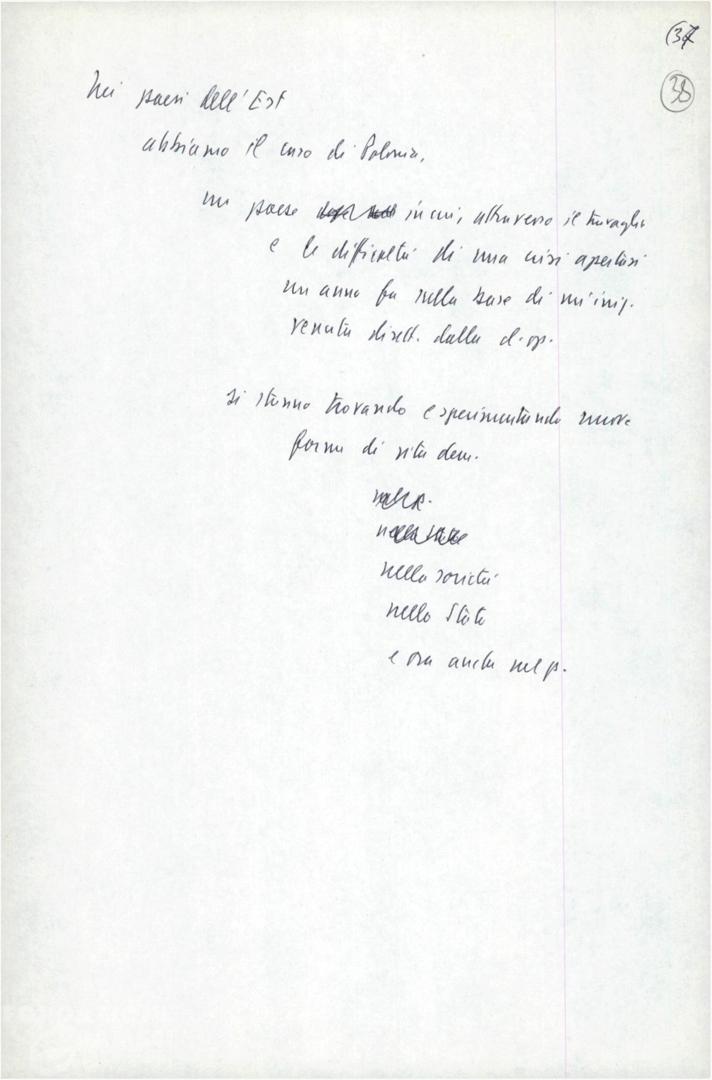 (37
38
Nei paesi dell'Est
abbiamo il caso di Polonia,
un paese in cui, attraverso il travaglio
e le difficoltà di una crisi apertasi
un anno fa sulla base di un'iniz.
venuta dirett. dalla cl. op.
si stanno trovando e sperimentando nuove
forme di vita dem.
nel p.
nello Stato
nella società
nello Stato
e ora anche nel p.